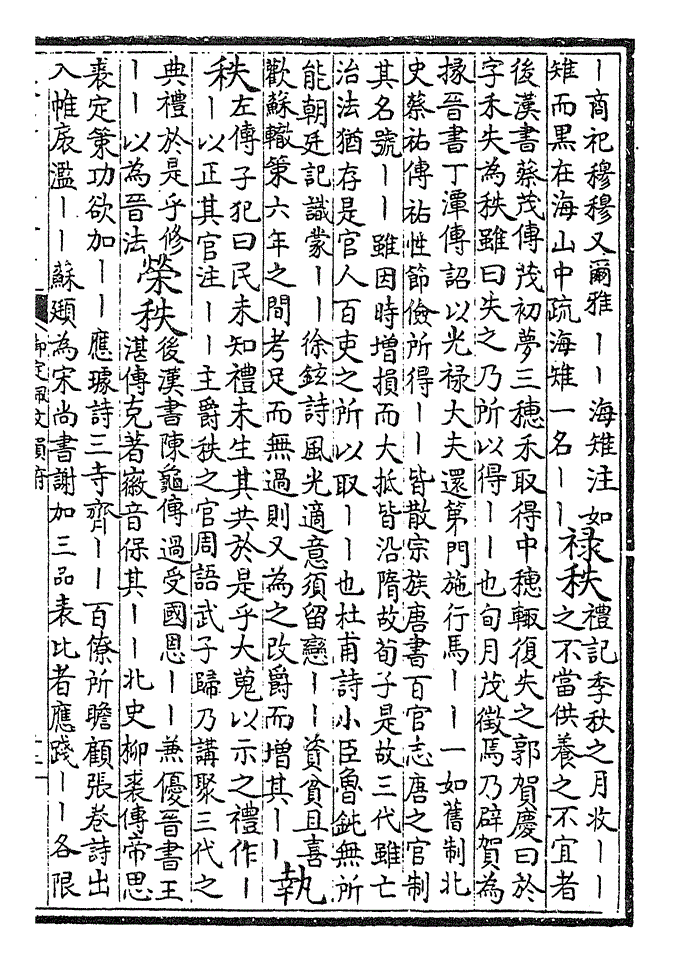 ｜商祀穆穆又爾雅｜｜海雉注如
雉而黑在海山中疏海雉一名｜｜
祿秩
禮記季秋之月收｜｜
之不當供養之不宜者
後漢書蔡茂傳茂初夢三穗禾取得中穗輒復失之郭賀慶曰於
字禾失為秩雖曰失之乃所以得｜｜也旬月茂徵焉乃辟賀為
掾晉書丁潭傳詔以光祿大夫還第門施行馬｜｜一如舊制北
史蔡祐傳祐性節儉所得｜｜皆散宗族唐書百官志唐之官制
其名號｜｜雖因時增損而大抵皆沿隋故荀子是故三代雖亡
治法猶存是官人百吏之所以取｜｜也杜甫詩小臣魯鈍無所
能朝廷記識蒙｜｜徐鉉詩風光適意須留戀｜｜資貧且喜
歡蘇轍策六年之間考足而無過則又為之改爵而增其｜｜
執秩
左傳子犯曰民未知禮未生其共於是乎大蒐以示之禮作｜
｜以正其官注｜｜主爵秩之官周語武子歸乃講聚三代之
典禮於是乎修
｜｜以為晉法
榮秩
後漢書陳龜傳過受國恩｜｜兼優晉書王
湛傳克著徽音保其｜｜北史柳裘傳帝思
裘定策功欲加｜｜應璩詩三寺齊｜｜百僚所瞻顧張卷詩出
入帷扆濫｜｜蘇頲為宋尚書謝加三品表比者應踐｜｜各限
御定佩文韻府